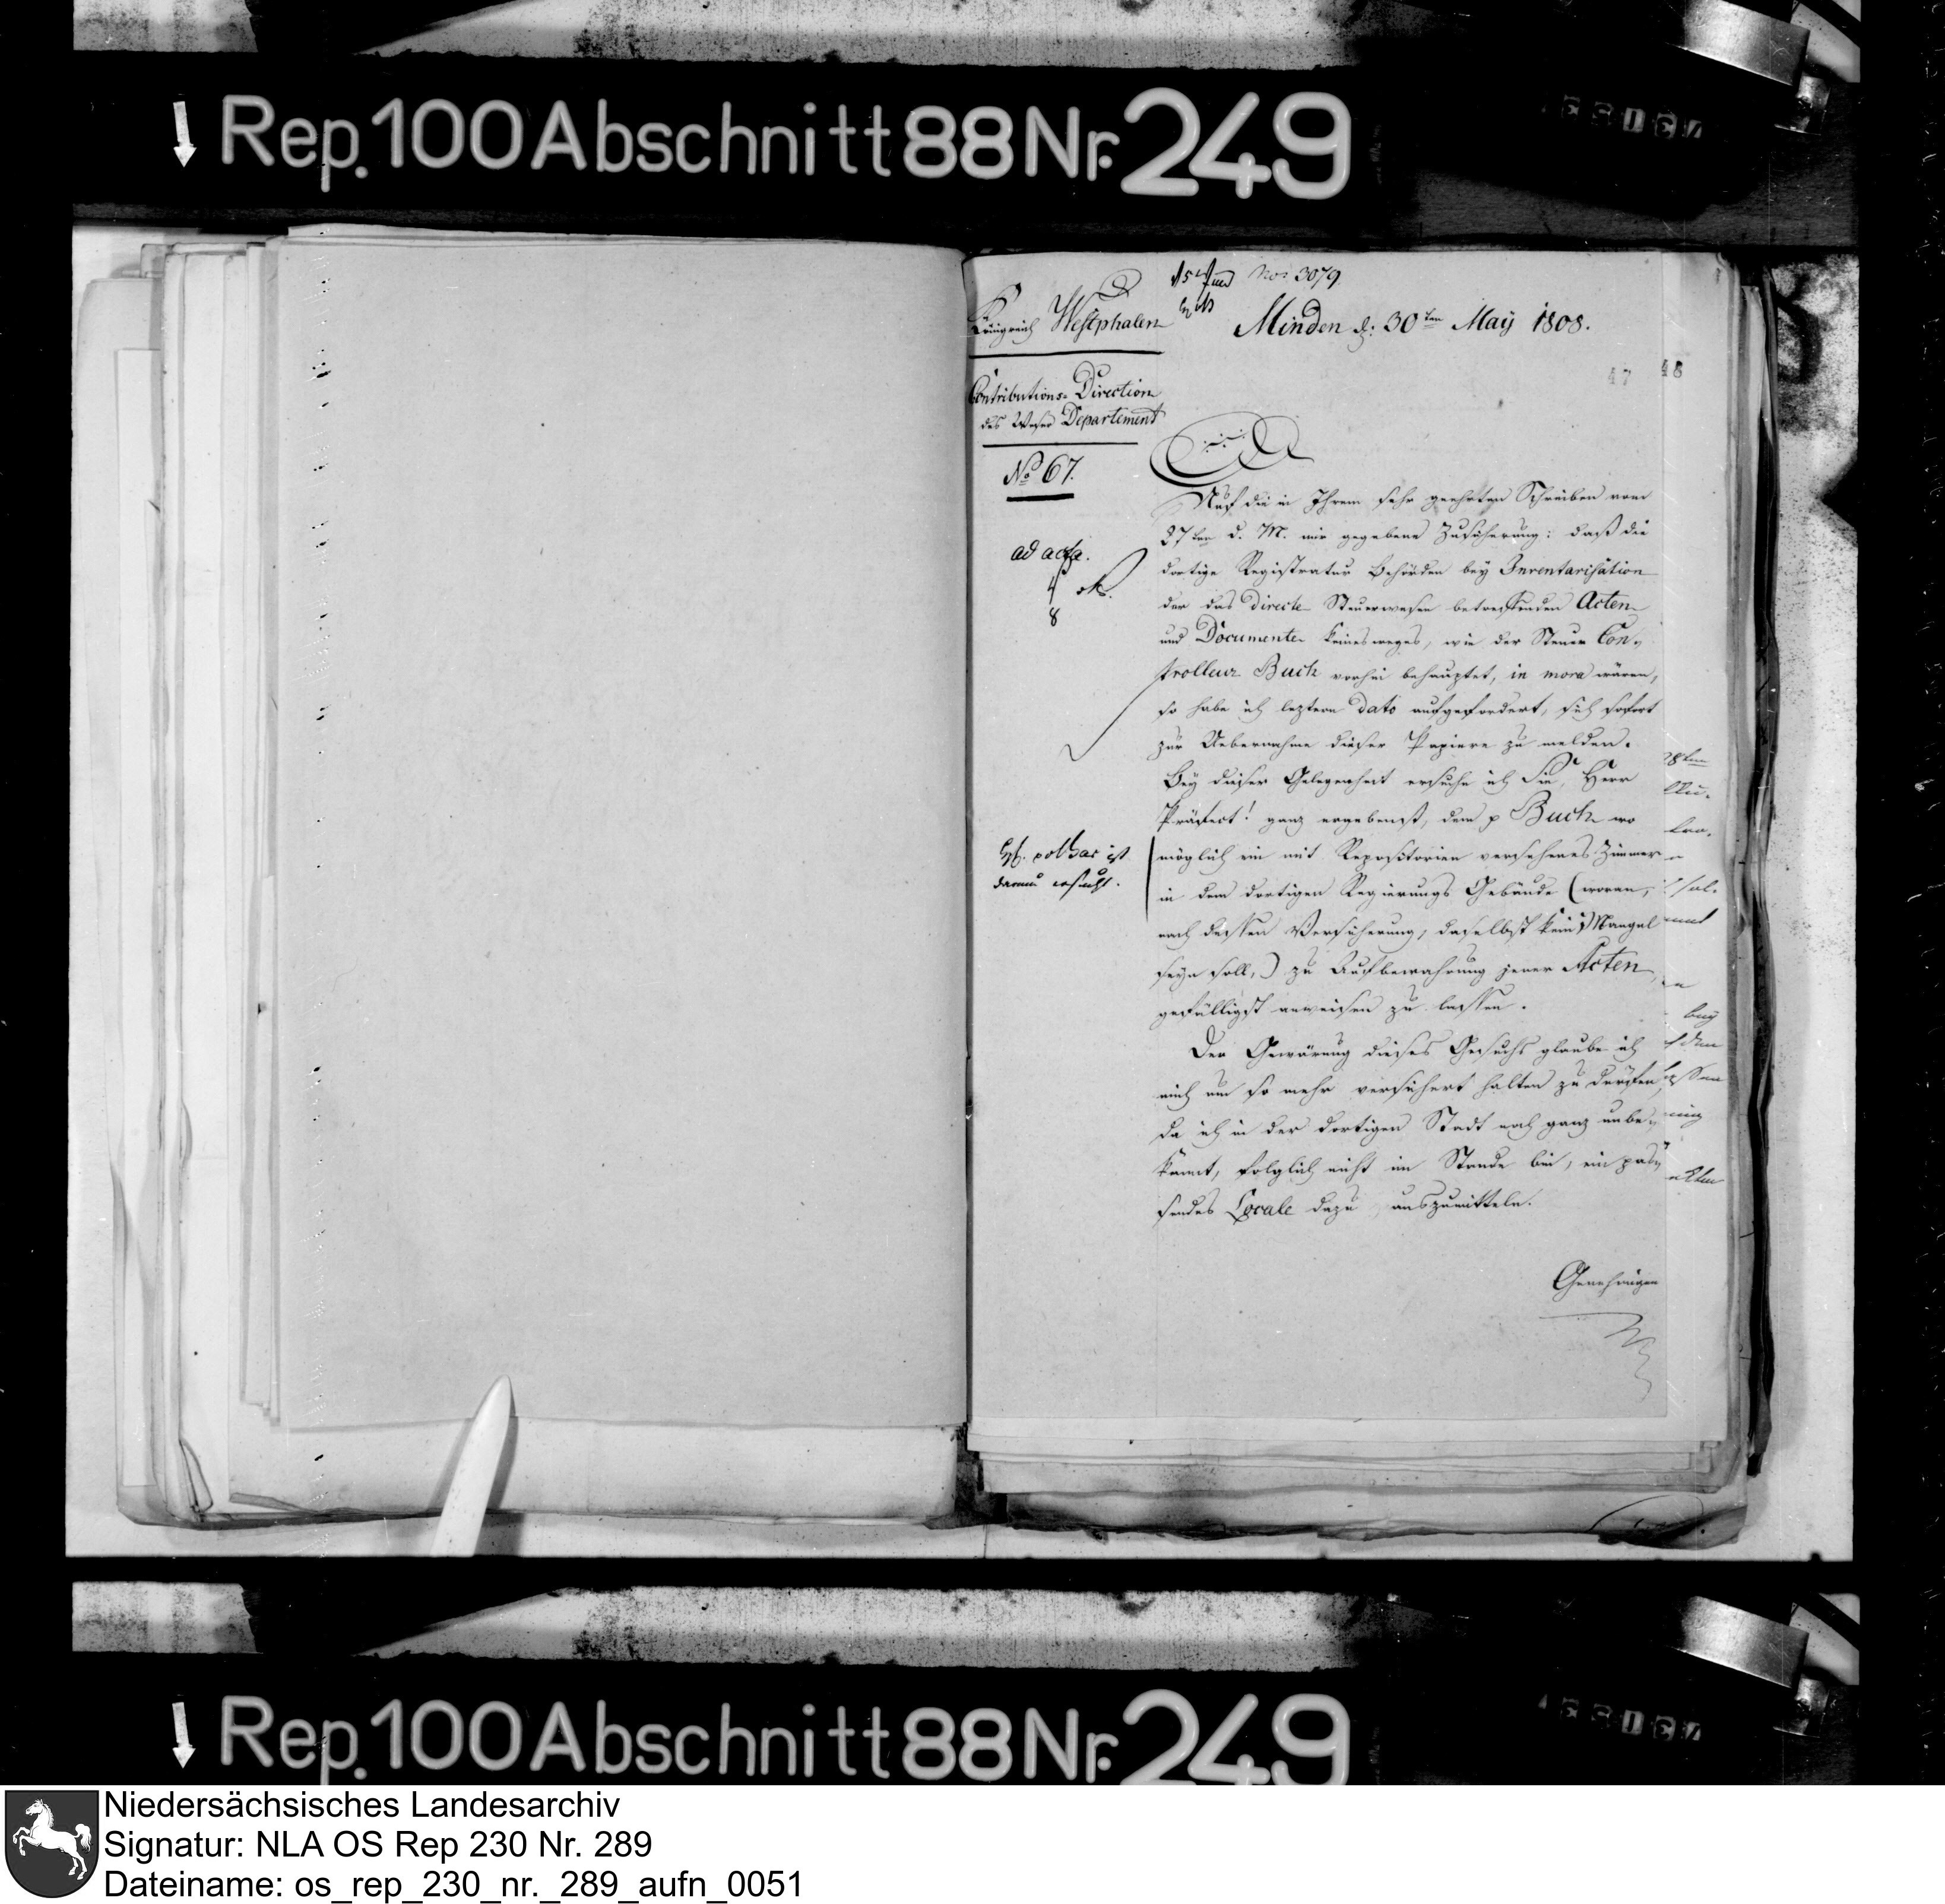 Rep. 100 Abschnitt 88 Nr. 249
Nor 3079.
Königreich Westphalen
Minden d: 30ten May 1808.
47 48
Contributions-Direction
des Weser Departement
No 67.
ad acta.
Auf die in Ihrem sehr geehrten Schreiben vom
27ten d. M. mir gegebene Zusicherung: daß die
dortige Registratur Behörden bey Inventarisation
der das directe Steuerwesen betreffenden Acten
und Documente keinesweges, wie der Steuer Con-
trolleur Buch vorhin behauptet, in mora wären,
so habe ich leztern dato aufgefordert, sich sofort
zur Uebernahme dieser Papiere zu melden.
Bey dieser Gelegenheit ersuche ich Sie, Herr
Präfect! ganz ergebenst, dem p Buch wo
möglich ein mit Repositorien versehenes Zimmer
in dem dortigen Regierungs Gebäude (woran,
nach dessen Versicherung, daselbst kein Mangel
seyn soll,) zu Aufbewahrung jener Acten,
gefälligst anweisen zu lassen.
Der Gewärung dieses Gesuchs glaube ich
mich um so mehr versichert halten zu dürfen,
da ich in der dortigen Stadt noch ganz unbe-
kannt, folglich nicht im Stande bin, ein pas-
sendes Locale dazu auszumitteln.
Genehmigen
ist
darum ersucht.
Rep. 100 Abschnitt 88 Nr. 249
Niedersächsisches Landesarchiv
Signatur: NLA OS Rep 230 Nr. 289
Dateiname: os_rep_230_nr._289_aufn_0051